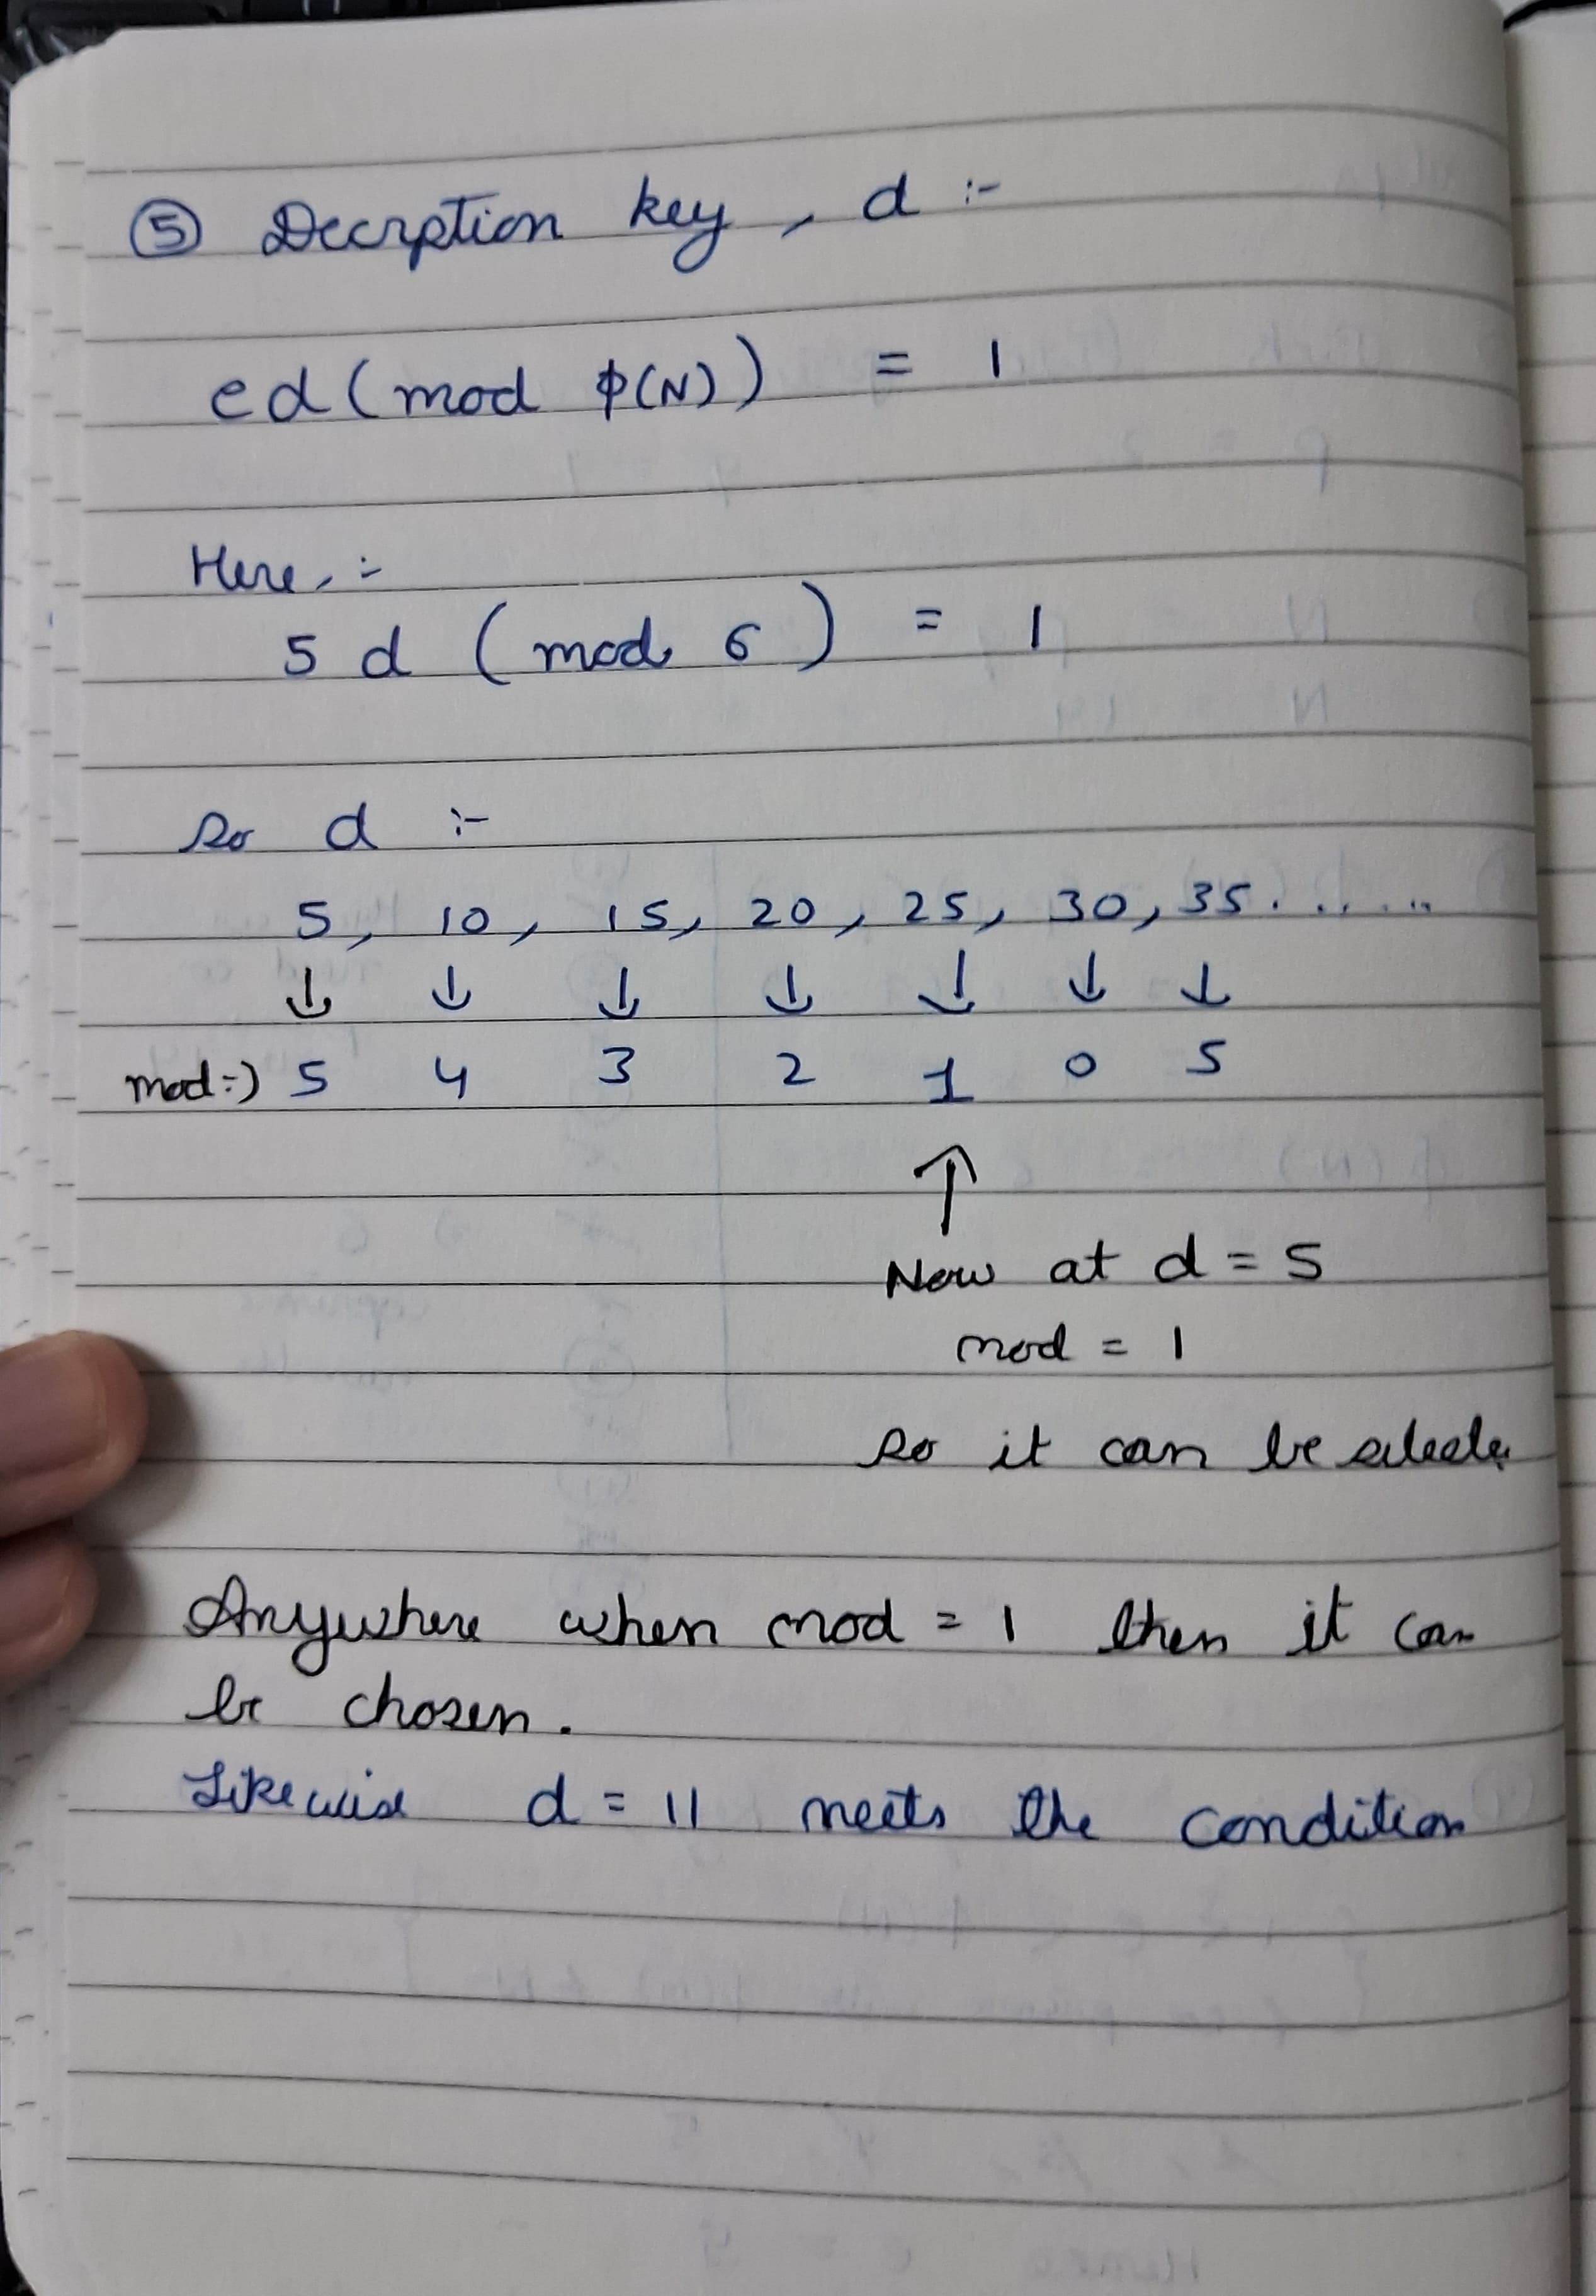 ⑤ Decrption key, d :-
ed (mod ϕ(N)) = 1
Here, :-
5 d (mod 6) = 1
So d :-
5, 10, 15, 20, 25, 30, 35. . . . . .
↓ ↓ ↓ ↓ ↓ ↓ ↓
mod :-) 5 4 3 2 1 0 5
↑
Now at d = 5
mod = 1
so it can be
Anywhere when mod = 1 then it can
be chosen.
Likewise d = 11 meets the condition